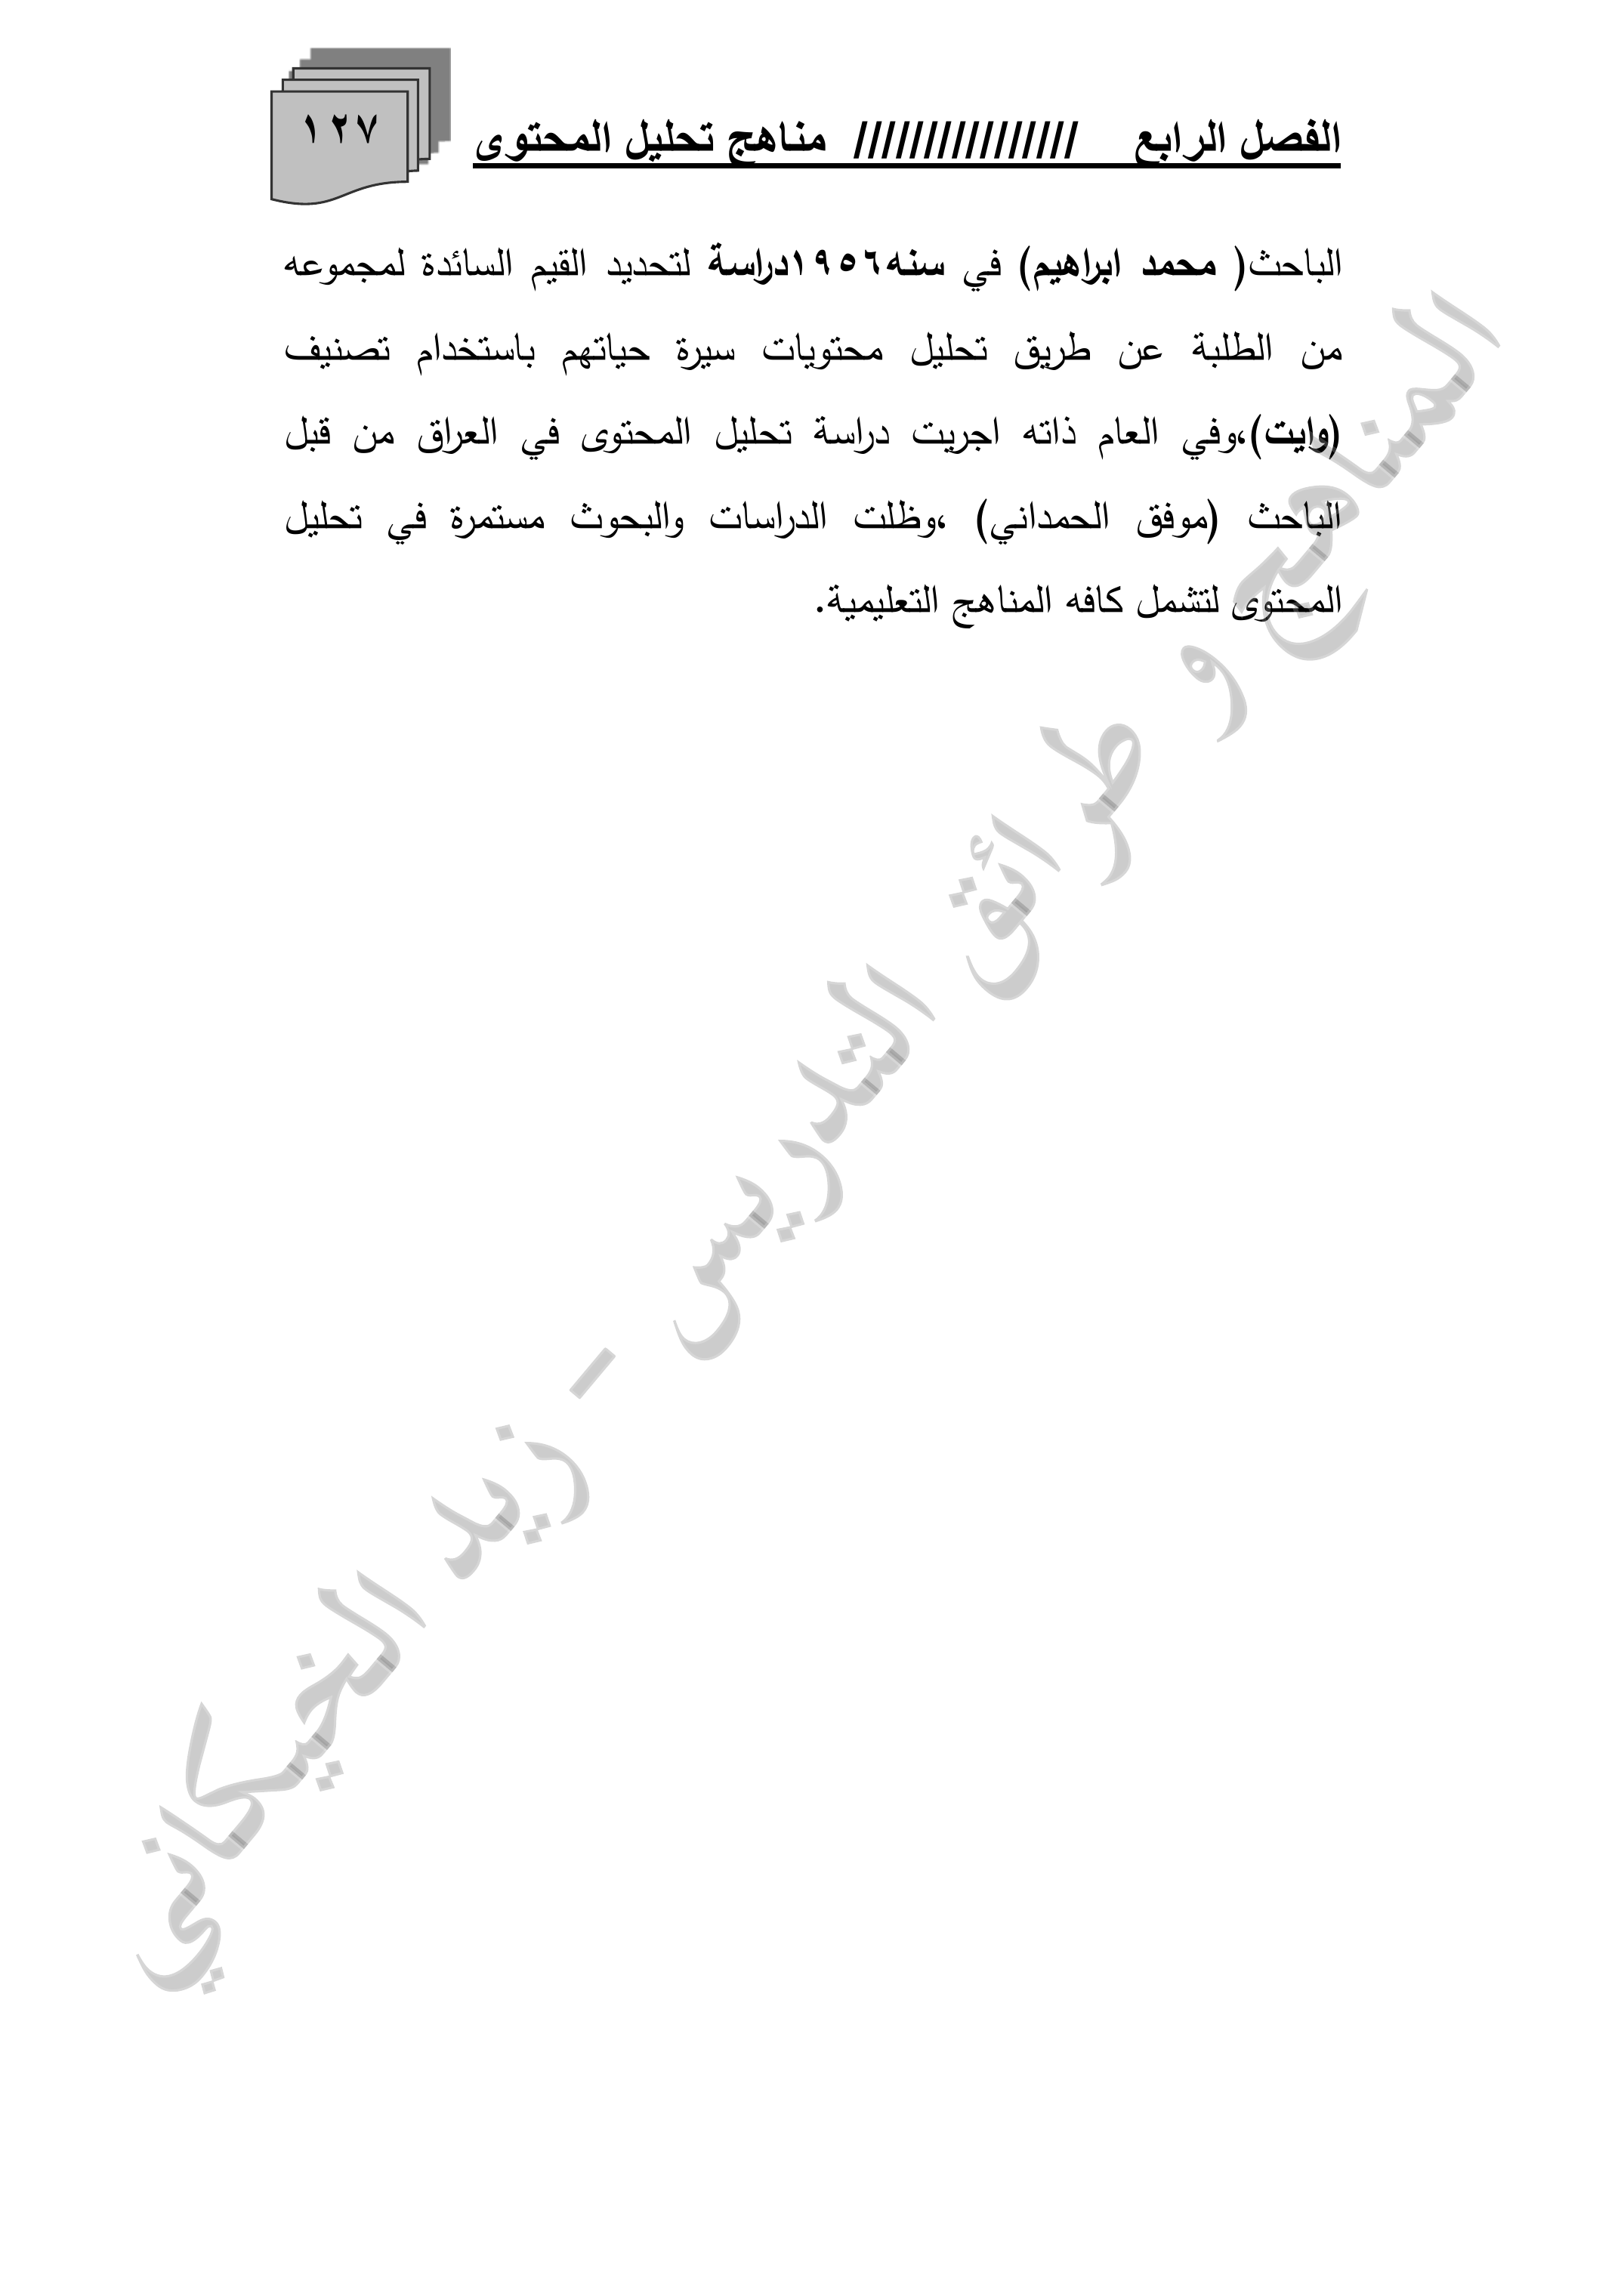 الفصل الرابع //////////////// مناهج تحليل المحتوى
١٢٧
الباحث( محمد ابراهيم) في سنه١٩٥٦دراسة لتحديد القيم السائدة لمجموعه
من الطلبة عن طريق تحليل محتويات سيرة حياتهم باستخدام تصنيف
(وايت)،وفي العام ذاته اجريت دراسة تحليل المحتوى في العراق من قبل
الباحث (موفق الحمداني) ،وظلت الدراسات والبحوث مستمرة في تحليل
المحتوى لتشمل كافه المناهج التعليمية.
المناهج و طرائق التدريس - زيد الخيكاني